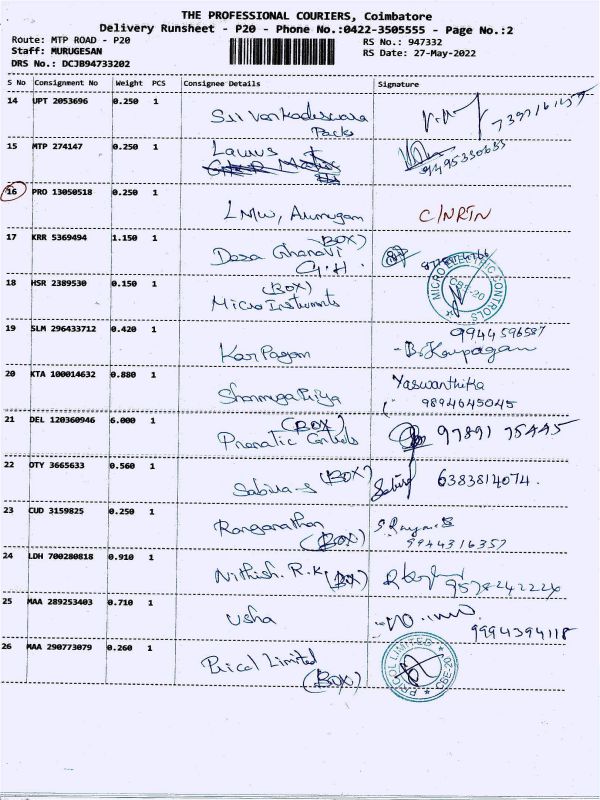 THE PROFESSIONAL COURIERS, Coimbatore
Delivery Runsheet - P20 - Phone No.:0422-3505555 - Page No.:2
Route: MTP ROAD - P20
RS No.: 947332
Staff: MURUGESAN
RS Date: 27-May-2022
DRS No.: DCJB94733202
S No Consignment No Weight PCS Consignee Details Signature
14 UPT 2053696 0.250 1
Packs
15 MTP 274147 0.250 1
9495330633
16 PRO 13050518 0.250 1
LMW, Arumugam C/NRTN
17 KRR 5369494 1.150 1
(BOX)
G.H.
18 HSR 2389530 0.150 1
(BOX)
Micro Instruments
MICRO CONTROLS
CBE-20
19 SLM 296433712 0.420 1
9944596587
KarPagam B. Karpagam
20 KTA 100014632 0.880 1
Yaswanthika
ShanmugaPriya
9894645045
21 DEL 120360946 6.000 1
(BOX)
Controls 97891 75445
22 OTY 3665633 0.560 1
Sabira-S (BOX) Sabira 6383814074.
23 CUD 3159825 0.250 1
Ranganathan
(BOX) 9944316357
24 LDH 700280818 0.910 1
Nithish. R.K (BOX)
25 MAA 289253403 0.710 1
Usha
9994394118
26 MAA 290773079 0.260 1
Pricol Limited
(BOX)
PRICOL LIMITED
CBE-20